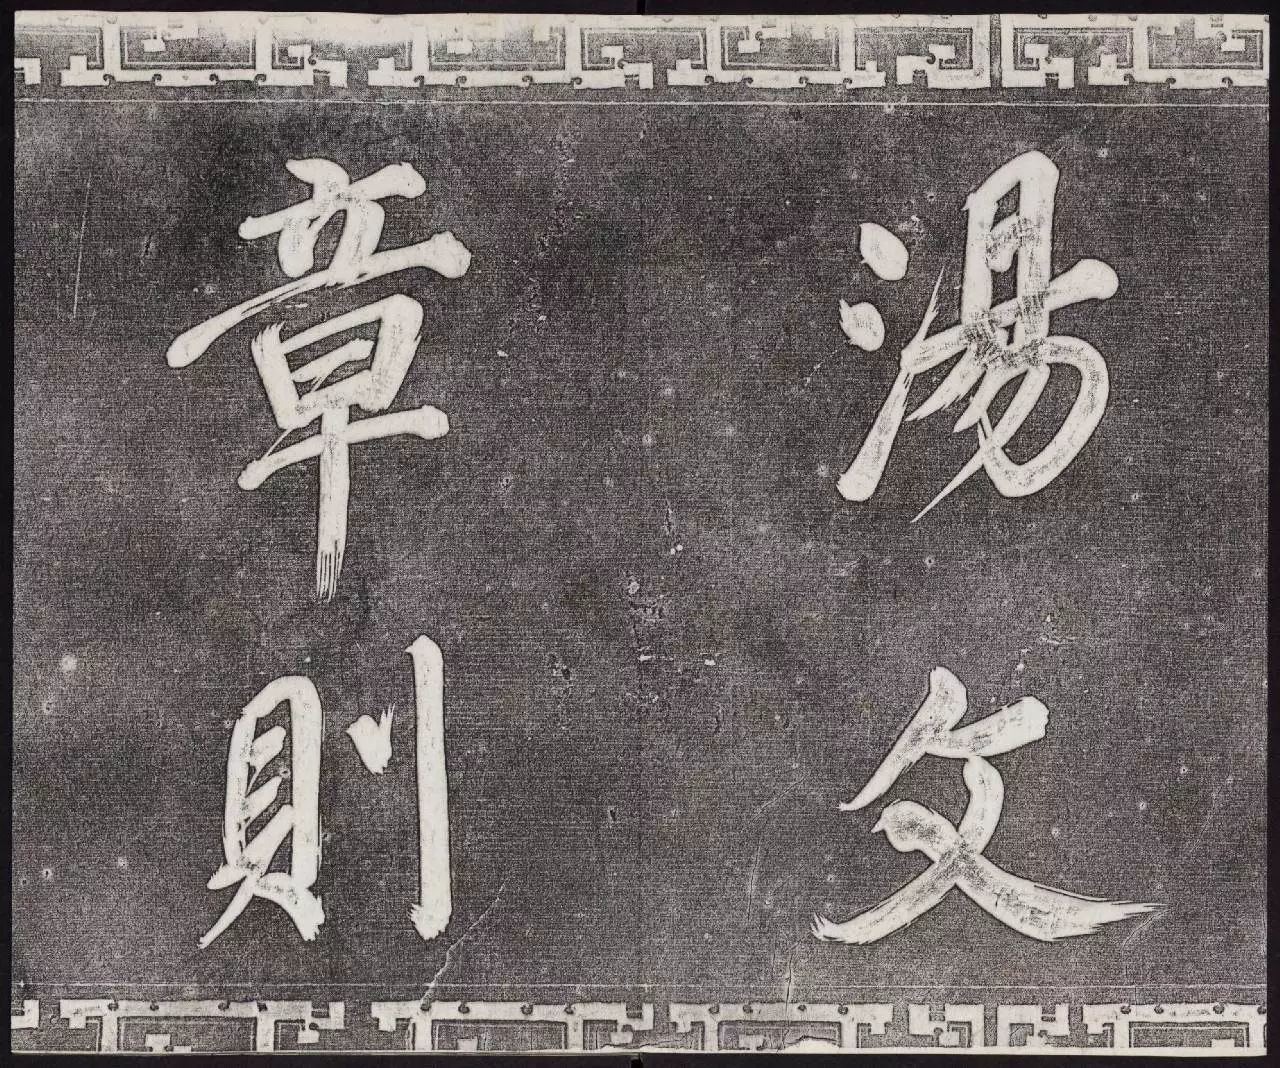 湯文
章則